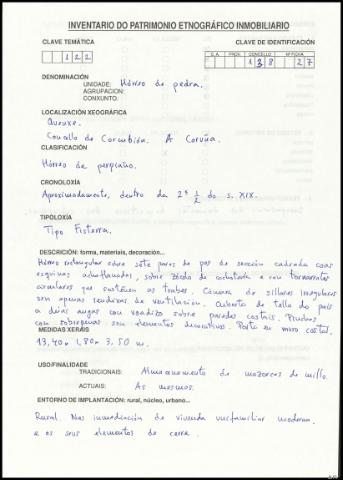 INVENTARIO DO PATRIMONIO ETNOGRÁFICO INMOBILIARIO
CLAVE TEMÁTICA
CLAVE DE IDENTIFICACIÓN
1 2 2
C.A. PROV. CONCELLO Nº FICHA
1 3 8 2 7
DENOMINACIÓN
UNIDADE: Hórreo de pedra.
AGRUPACION:
CONXUNTO:
LOCALIZACIÓN XEOGRÁFICA
Quenxe.
Concello de Corcubión. A Coruña.
CLASIFICACIÓN
Hórreo de perpiaño.
CRONOLOXÍA
Aproximadamente, dentro da 2ª 1/2 do s. XIX.
TIPOLOXÍA
Tipo Fisterra.
DESCRICIÓN: forma, materiais, decoración...
Hórreo rectangular sobre sete pares de pés de sección cadrada coas
esquinas achaflanadas, sobre zócolo de cachotería e con tornarratos
circulares que sosteñen as trabes. Cámara de sillares irregulares
con apenas rendixas de ventilación. Cuberta de tella do país
a dúas augas con voadizo sobre paredes costais. Pinches
con sobrepenas sen elementos decorativos. Porta no muro costal.
MEDIDAS XERAIS
13,40 x 1,80 x 3,50 m.
USO/FINALIDADE
TRADICIONAIS: Almacenamento de mazorcas de millo.
ACTUAIS: As mesmas.
ENTORNO DE IMPLANTACIÓN: rural, núcleo, urbano...
Rural. Nas inmediacións de vivenda unifamiliar moderna
e os seus elementos de carro.